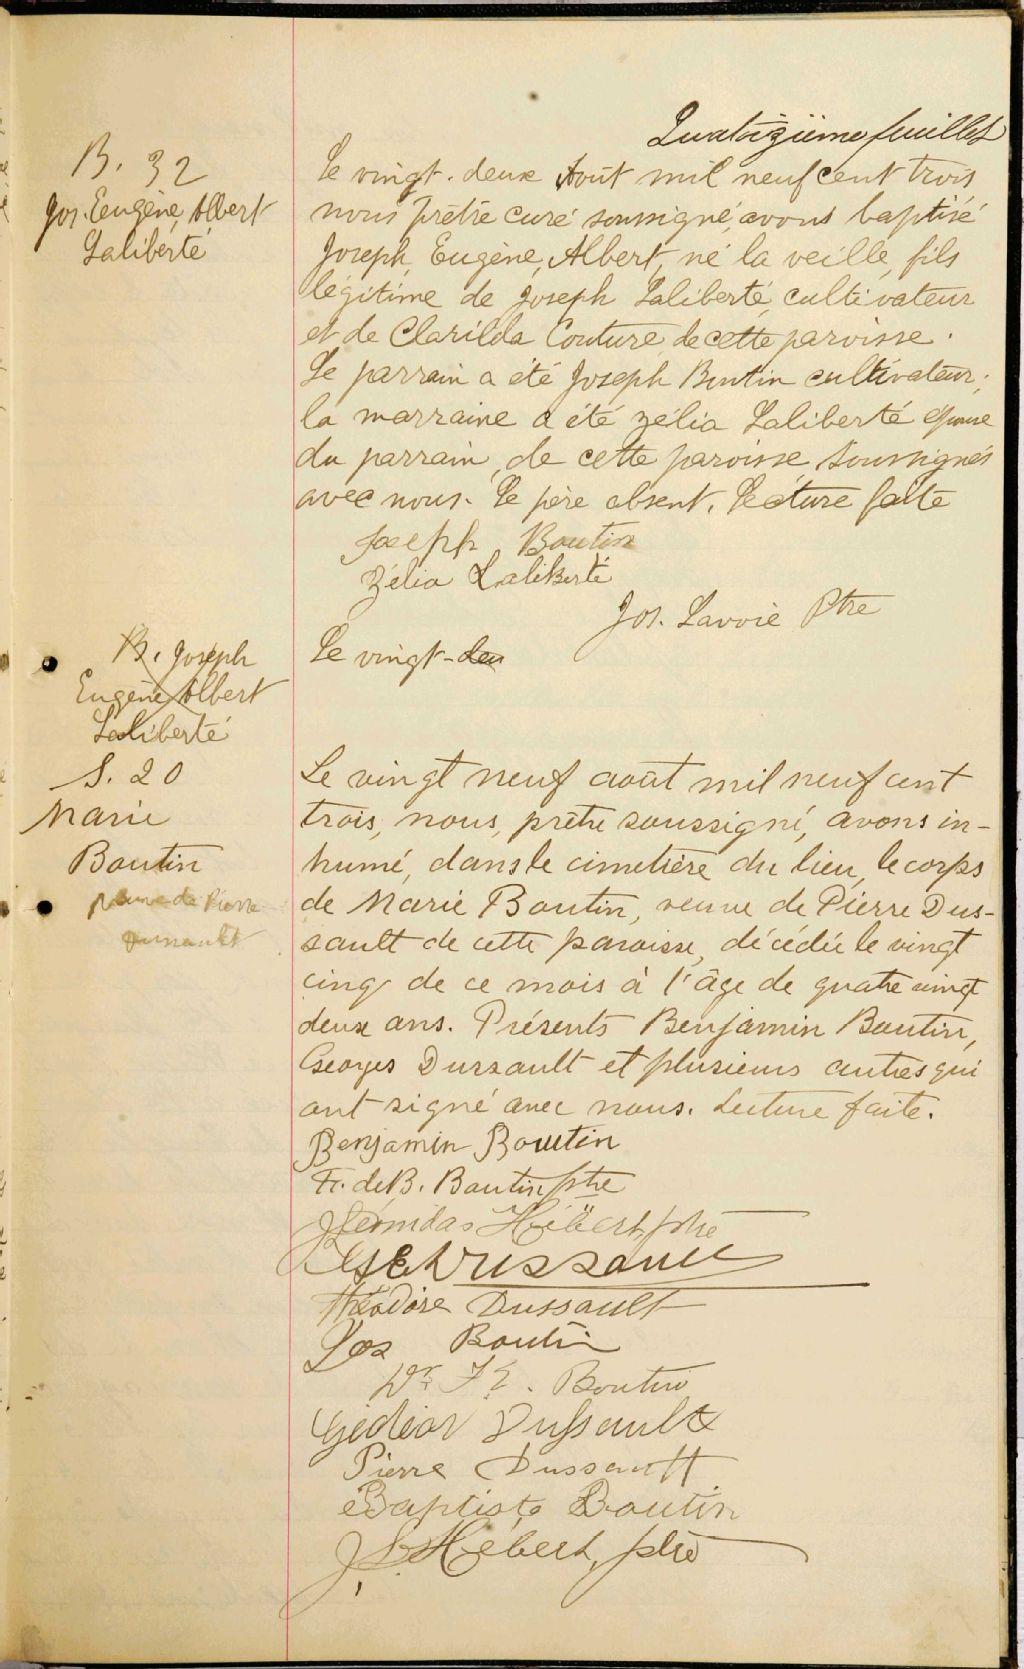 Quatorzième feuillet
B. 32
Jos. Eugène, Albert
Laliberté
Le vingt-deux Août mil neuf cent trois
nous prêtre curé soussigné, avons baptisé
Joseph, Eugène, Albert, né la veille, fils
légitime de Joseph Laliberté, cultivateur
et de Clarilda Couture de cette paroisse.
Le parrain a été Joseph Boutin cultivateur;
la marraine a été Zélia Laliberté épouse
du parrain, de cette paroisse, soussignés
avec nous. Le père absent. Lecture faite
Joseph Boutin
Zélia Laliberté
Jos. Lavoie Ptre
B. Joseph
Eugène Albert
Laliberté
Le vingt-deu
S. 20
Marie
Boutin
veuve de Pierre
Dussault
Le vingt neuf août mil neuf cent
trois, nous, prêtre soussigné, avons in-
humé, dans le cimetière du lieu, le corps
de Marie Boutin, veuve de Pierre Dus-
sault de cette paroisse, décédée le vingt
cinq de ce mois à l'âge de quatre vingt
deux ans. Présents Benjamin Boutin,
Georges Dussault et plusieurs autres qui
ont signé avec nous. Lecture faite.
Benjamin Boutin
F. de B. Boutin ptre
Léonidas Hébert, ptre
Dussault
Théodore Dussault
Jos Boutin
Dr. F. E. Boutin
Gédéon Dussault
Pierre Dussault
Baptiste Boutin
Hébert, ptre